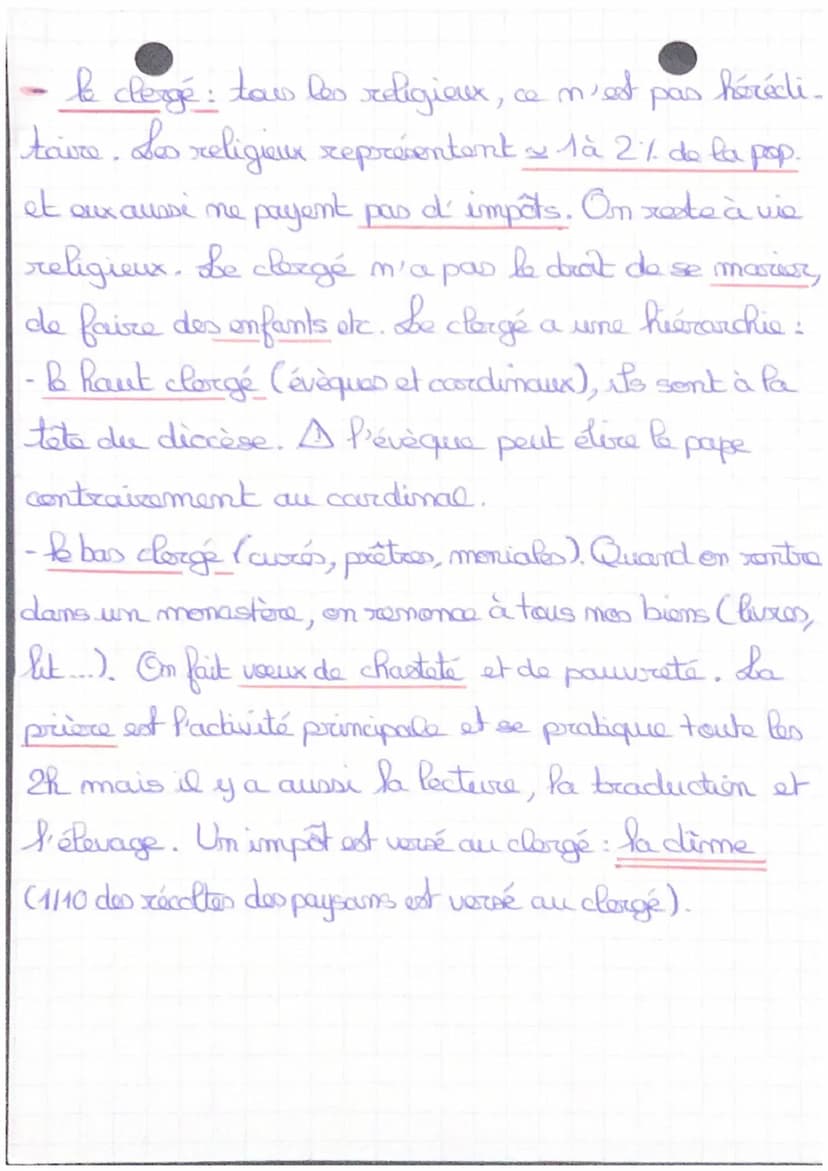 - le clergé : tous les religieux, ce n'est pas hérédi-
taire. Les religieux représentent ≃ 1 à 2% de la pop.
et eux aussi ne payent pas d'impôts. On reste à vie
religieux. Le clergé n'a pas le droit de se marier,
de faire des enfants etc. Le clergé a une hiérarchie :
- le haut clergé (évèques et cardinaux), ils sont à la
tête du diocèse. ⚠ l'évèque peut élire le pape
contrairement au cardinal.
- le bas clergé (curés, prêtres, moniales). Quand on rentre
dans un monastère, on renonce à tous nos biens (livres,
lit ...). On fait vœux de chasteté et de pauvreté. La
prière est l'activité principale et se pratique toute les
2h mais il y a aussi la lecture, la traduction et
l'élevage. Un impôt est versé au clergé : la dîme
(1/10 des récoltes des paysans est versé au clergé).